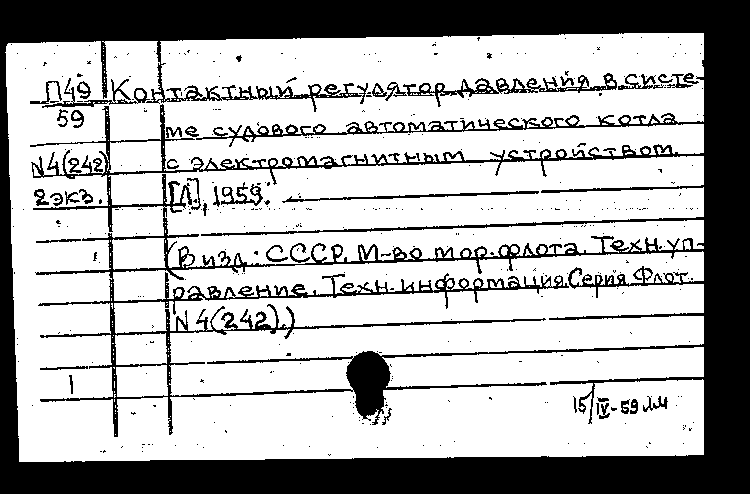 П49 Контактный регулятор давления в систе-
59
ме судового автоматического котла
N4(242) с электромагнитным устройством.
2 экз. [Л], 1959.
(В изд.: СССР. М-во мор. флота. Техн. уп-
равление. Техн. информация. Серия Флот.
N 4(242).)
1
15/IV-59